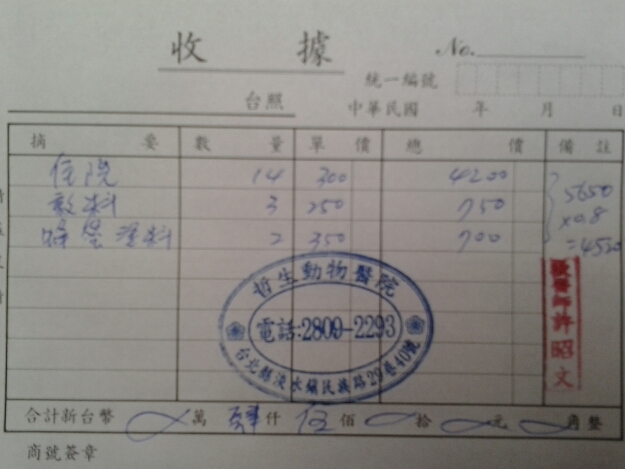 收據
No.
統一編號
台照 中華民國 年 月 日
摘要 數量 單價 總價 備註
住院 14 300 4200 5650
敷料 3 250 750 x0.8
2 350 700
哲生動物醫院
電話:2809-2293
台北縣淡水鎮民族路29巷40號
獸醫師許昭文
合計新台幣 萬 肆仟 伍佰 拾 元 角整
商號簽章